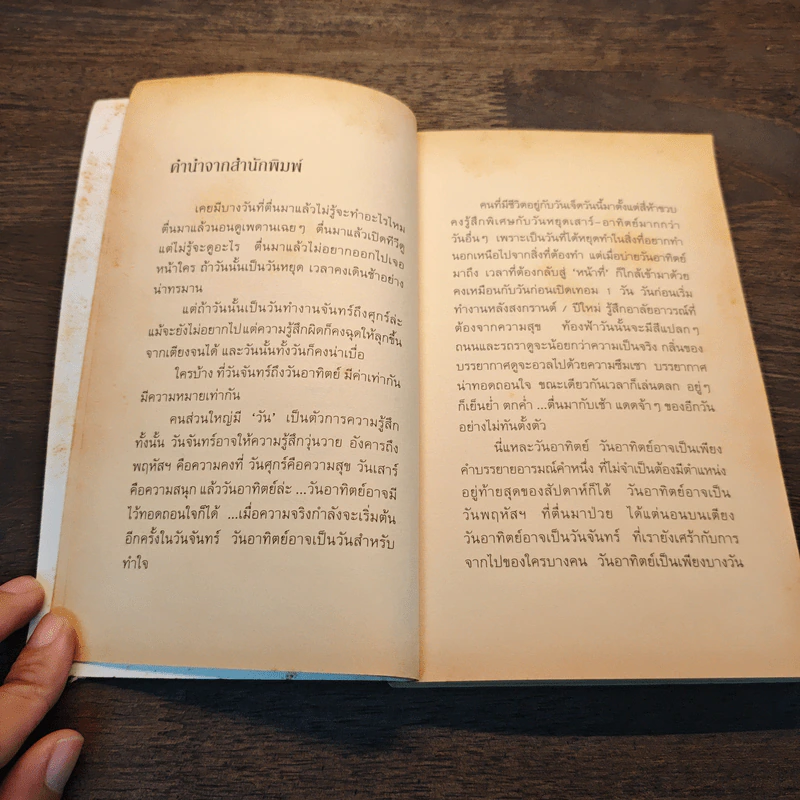 คำนำจากสำนักพิมพ์
เคยมีบางวันที่ตื่นมาแล้วไม่รู้จะทำอะไรไหม
ตื่นมาแล้วนอนดูเพดานเฉยๆ ตื่นมาแล้วเปิดทีวีดู
แต่ไม่รู้จะดูอะไร ตื่นมาแล้วไม่อยากออกไปเจอ
หน้าใคร ถ้าวันนั้นเป็นวันหยุด เวลาคงเดินช้าอย่าง
น่าทรมาน
แต่ถ้าวันนั้นเป็นวันทำงานจันทร์ถึงศุกร์ล่ะ
แม้จะยังไม่อยากไปแต่ความรู้สึกผิดก็คงฉุดให้ลุกขึ้น
จากเตียงจนได้ และวันนั้นทั้งวันก็คงน่าเบื่อ
ใครบ้าง ที่วันจันทร์ถึงวันอาทิตย์ มีค่าเท่ากัน
มีความหมายเท่ากัน
คนส่วนใหญ่มี 'วัน' เป็นตัวการความรู้สึก
ทั้งนั้น วันจันทร์อาจให้ความรู้สึกวุ่นวาย อังคารถึง
พฤหัสฯ คือความคงที่ วันศุกร์คือความสุข วันเสาร์
คือความสนุก แล้ววันอาทิตย์ล่ะ ...วันอาทิตย์อาจมี
ไว้ทอดถอนใจก็ได้ ...เมื่อความจริงกำลังจะเริ่มต้น
อีกครั้งในวันจันทร์ วันอาทิตย์อาจเป็นวันสำหรับ
ทำใจ
คนที่มีชีวิตอยู่กับวันเจ็ดวันนี้มาตั้งแต่สี่ห้าขวบ
คงรู้สึกพิเศษกับวันหยุดเสาร์-อาทิตย์มากกว่า
วันอื่นๆ เพราะเป็นวันที่ได้หยุดทำในสิ่งที่อยากทำ
นอกเหนือไปจากสิ่งที่ต้องทำ แต่เมื่อบ่ายวันอาทิตย์
มาถึง เวลาที่ต้องกลับสู่ 'หน้าที่' ก็ใกล้เข้ามาด้วย
คงเหมือนกับวันก่อนเปิดเทอม 1 วัน วันก่อนเริ่ม
ทำงานหลังสงกรานต์ / ปีใหม่ รู้สึกอาลัยอาวรณ์ที่
ต้องจากความสุข ท้องฟ้าวันนั้นจะมีสีแปลกๆ
ถนนและรถราดูจะน้อยกว่าความเป็นจริง กลิ่นของ
บรรยากาศดูจะอวลไปด้วยความซึมเซา บรรยากาศ
น่าทอดถอนใจ ขณะเดียวกันเวลาก็เล่นตลก อยู่ๆ
ก็เย็นย่ำ ตกค่ำ ...ตื่นมากับเช้า แดดจ้าๆ ของอีกวัน
อย่างไม่ทันตั้งตัว
นี่แหละวันอาทิตย์ วันอาทิตย์อาจเป็นเพียง
คำบรรยายอารมณ์คำหนึ่ง ที่ไม่จำเป็นต้องมีตำแหน่ง
อยู่ท้ายสุดของสัปดาห์ก็ได้ วันอาทิตย์อาจเป็น
วันพฤหัสฯ ที่ตื่นมาป่วย ได้แต่นอนบนเตียง
วันอาทิตย์อาจเป็นวันจันทร์ ที่เรายังเศร้ากับการ
จากไปของใครบางคน วันอาทิตย์เป็นเพียงบางวัน